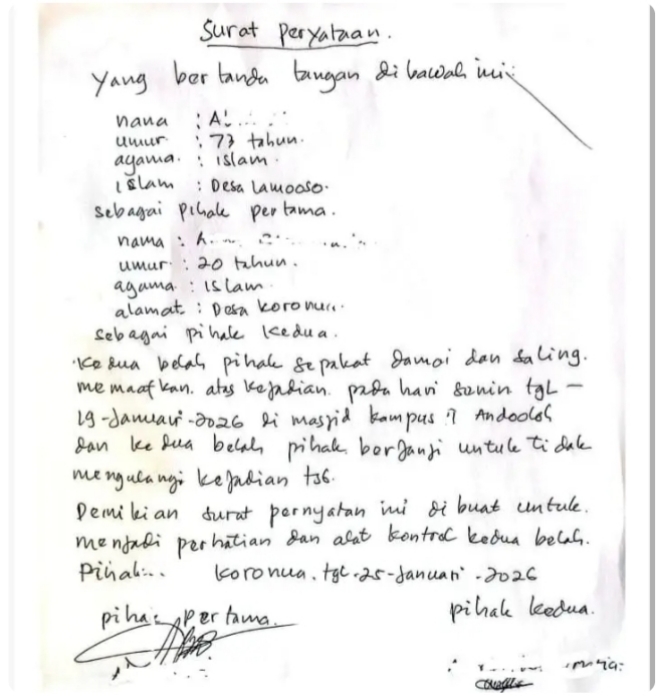 Surat peryataan.
Yang bertanda tangan di bawah ini:
nana :
umur : 73 tahun.
agama. : islam.
islam : Desa Lamooso.
sebagai pihak pertama.
nama :
umur : 20 tahun.
agama : islam.
alamat : Desa koronua.
sebagai pihak kedua.
Kedua belah pihak sepakat damai dan saling.
memaafkan. atas kejadian. pada hari senin tgl -
19-Januari-2026 di masjid kampus Andoolo
dan kedua belah pihak berjanji untuk tidak
mengulangi kejadian tsb.
Demikian surat pernyatan ini di buat untuk.
menjadi perhatian dan alat kontrol kedua belah.
Pihak... koronua. tgl. 25-Januari-2026
pihak pertama.
pihak kedua.